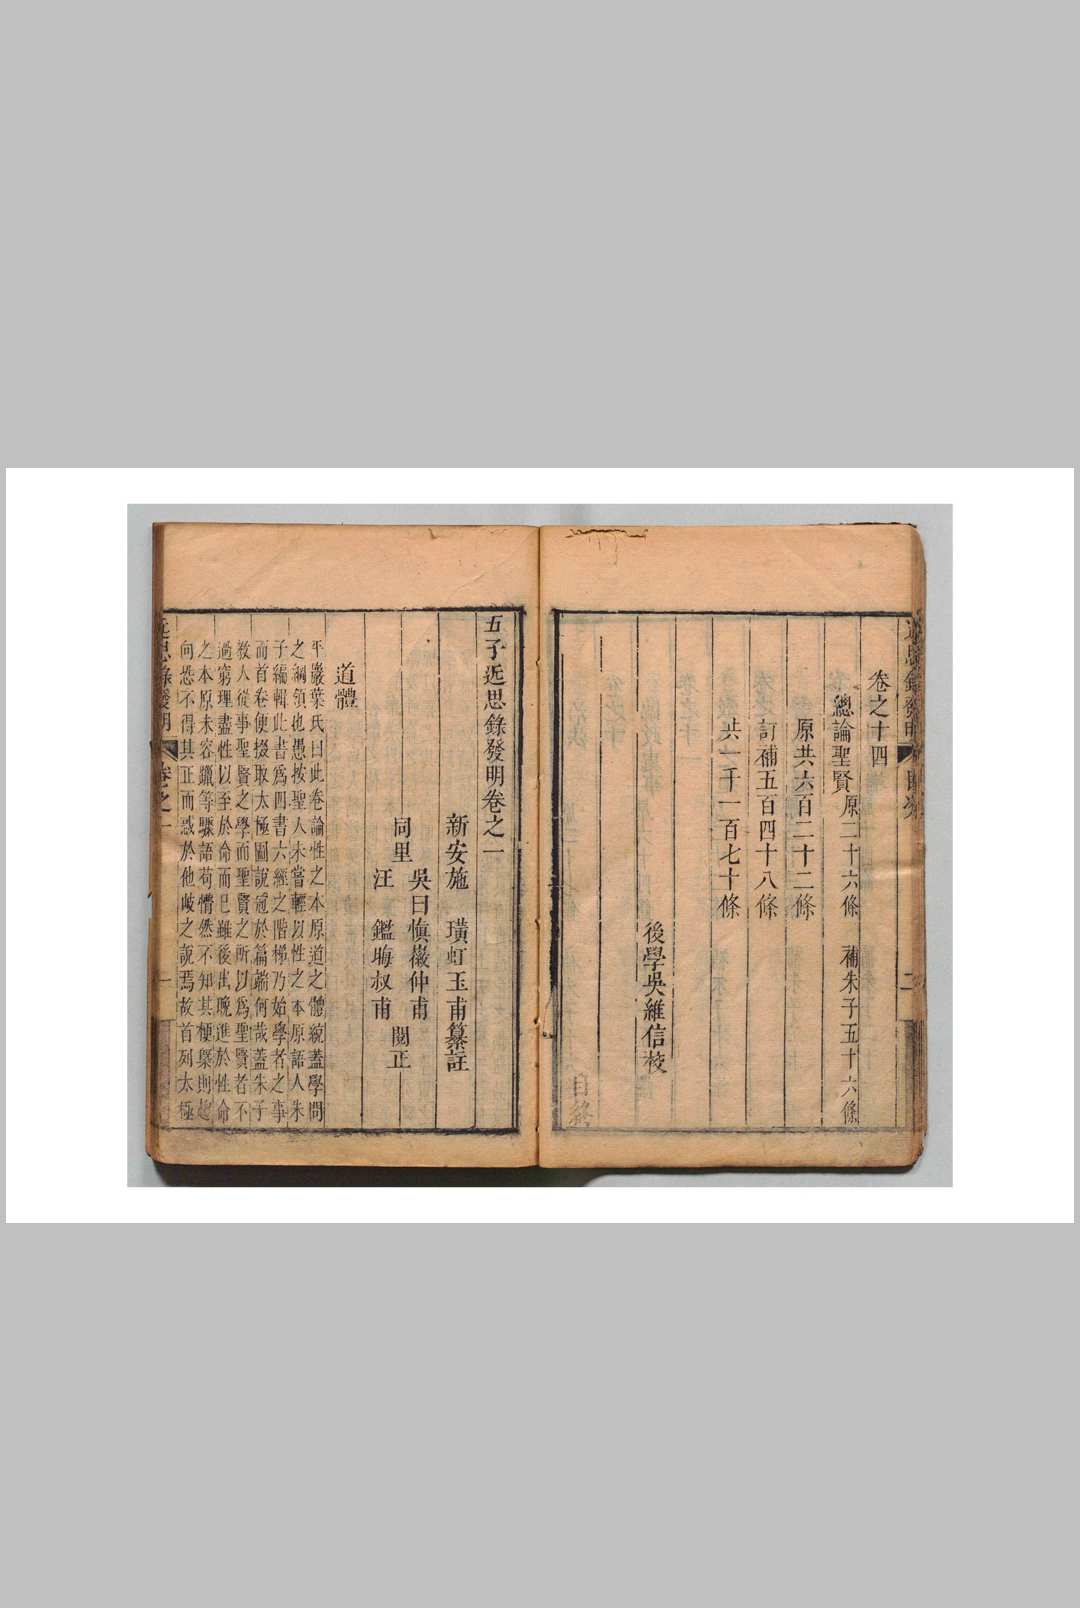 卷之十四
總論聖賢原二十六條 補朱子五十六條
原共六百二十二條
訂補五百四十八條
共一千一百七十條
後學吳維信校
目終
五子近思錄發明卷之一
新安施 璜虹玉甫纂註
吳曰慎徽仲甫
同里 閱正
汪 鑑晦叔甫
道體
平巖葉氏曰此卷論性之本原道之體統蓋學問
之綱領也愚按聖人未嘗輕以性之本原語人朱
子編輯此書爲四書六經之階梯乃始學者之事
而首卷便掇取太極圖說冠於篇端何哉蓋朱子
教人從事聖賢之學而聖賢之所以爲聖賢者不
過窮理盡性以至於命而已雖後出晚進於性命
之本原未容躐等驟語苟懵然不知其梗槩則趨
向恐不得其正而惑於他岐之說焉故首列太極
近思錄發明 卷之一 一